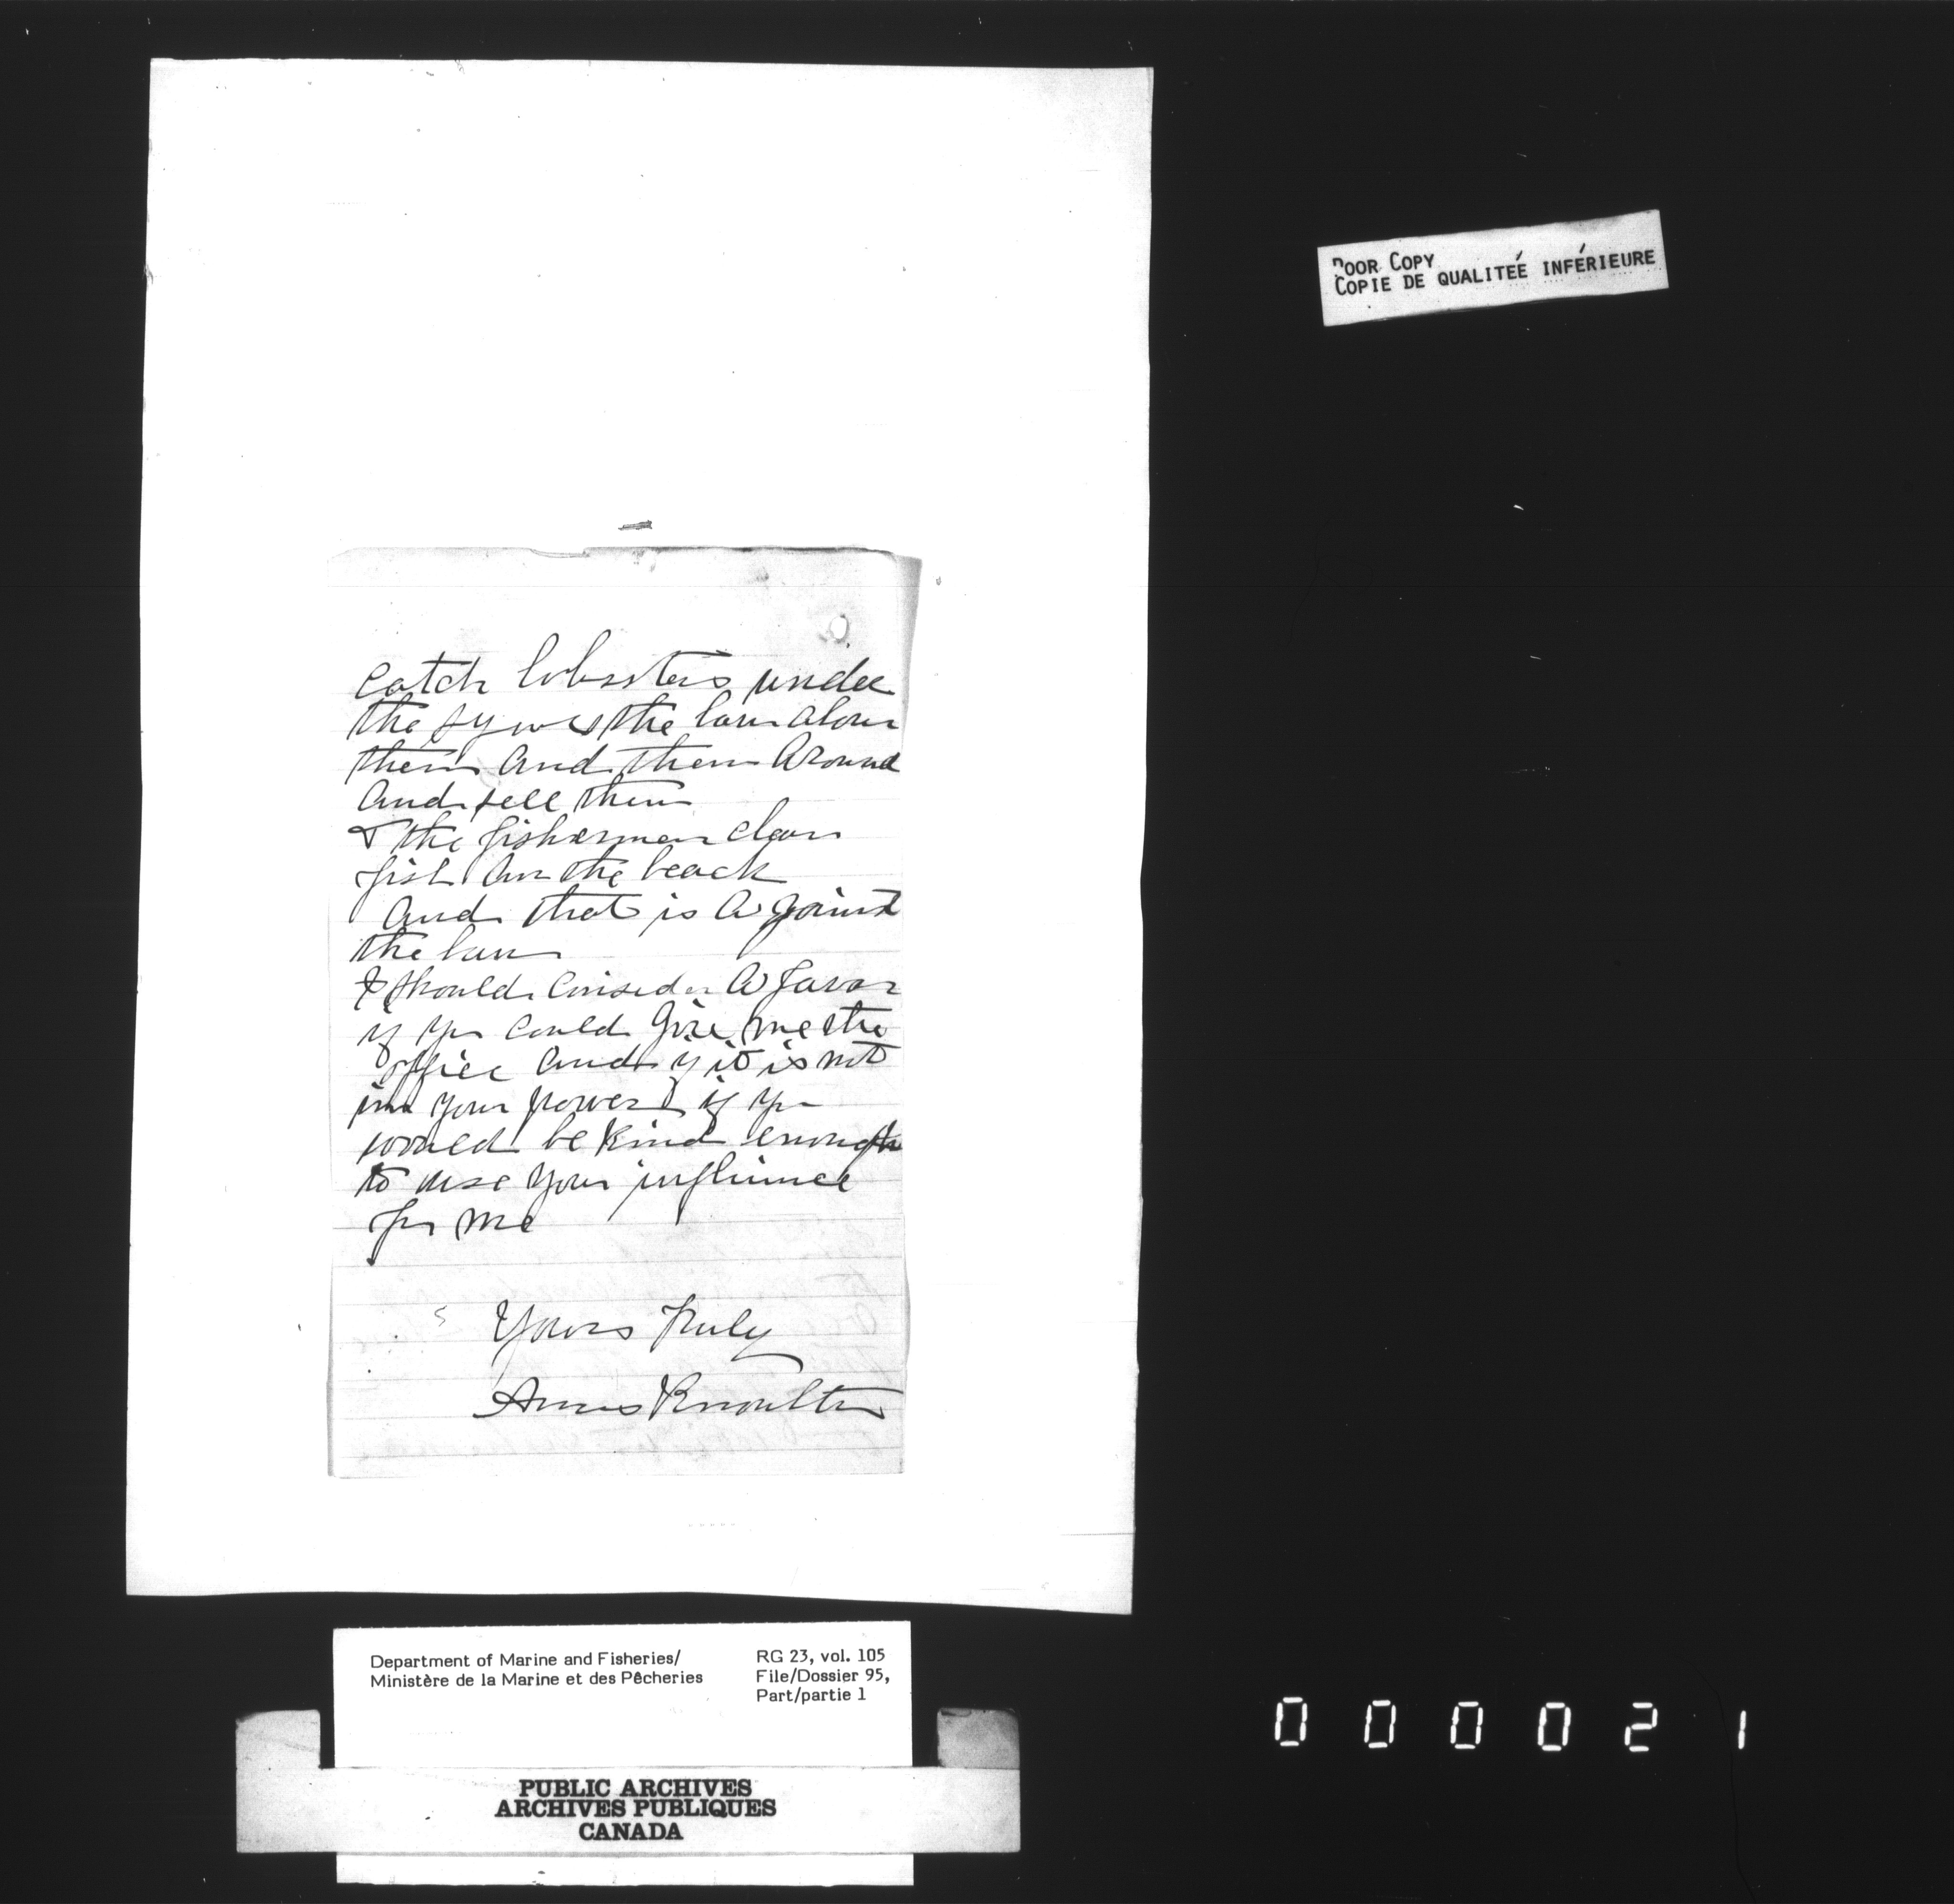 catch lobssters under
the the law alow
them and them around
and sell them
& the fishermen clean
fish on the beach
and that is a gainst
the law
I should consider a favor
if you could give me the
office and if it is not
in your power if you
would be kind enough
to use your influince
for me
Yours Truly
Amos Knoulton
POOR COPY
COPIE DE QUALITEÉ INFÉRIEURE
Department of Marine and Fisheries/
Ministère de la Marine et des Pêcheries
RG 23, vol. 105
File/Dossier 95,
Part/partie 1
PUBLIC ARCHIVES
ARCHIVES PUBLIQUES
CANADA
000021